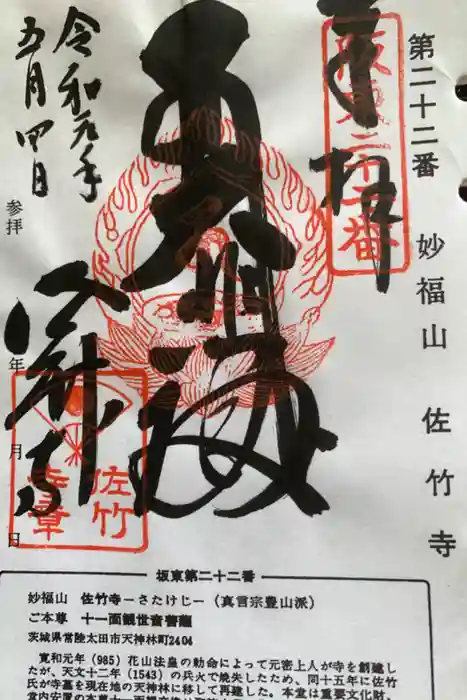 第二十二番 妙福山 佐竹寺
奉拝
坂東二十二番
令和元年
五月四日
参拝
年 月 日
佐竹寺
佐竹
寺章
坂東第二十二番
妙福山 佐竹寺―さたけじ―(真言宗豊山派)
ご本尊 十一面観世音菩薩
茨城県常陸太田市天神林町2404
寛和元年(985)花山法皇の勅命によって元密上人が寺を創建し
たが、天文十二年(1543)の兵火で焼失したため、同十五年に佐竹
氏が寺墓を現在地の天神林に移して再建した。本堂は重要文化財、